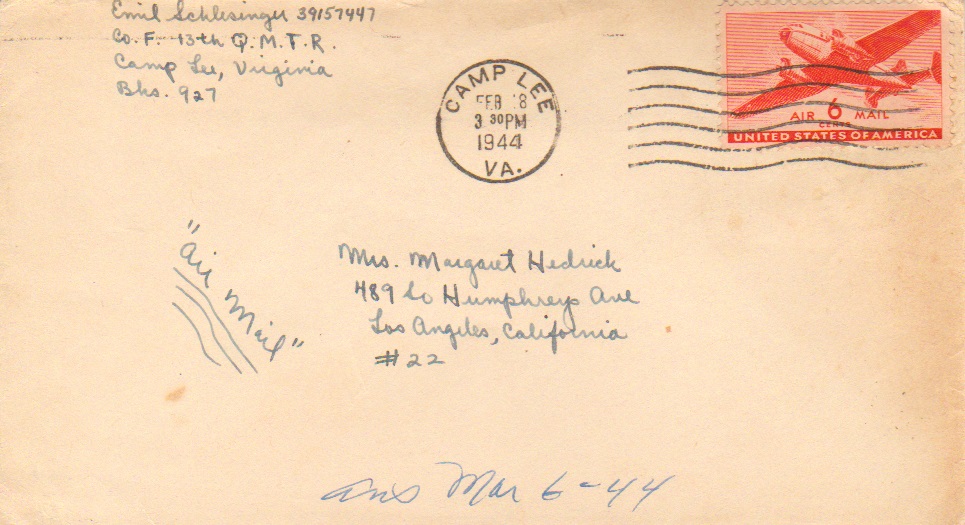 Emil Schlesinger 39157447
Co. F. 13th Q.M.T.R.
Camp Lee, Virginia
Bks. 927
CAMP LEE
FEB 18
3 30PM
1944
VA.
AIR 6 MAIL
CENTS
UNITED STATES OF AMERICA
"Air Mail"
Mrs. Margaret Hedrick
489 So Humphreys Ave
Los Angeles, California
#22
Ans Mar 6-44